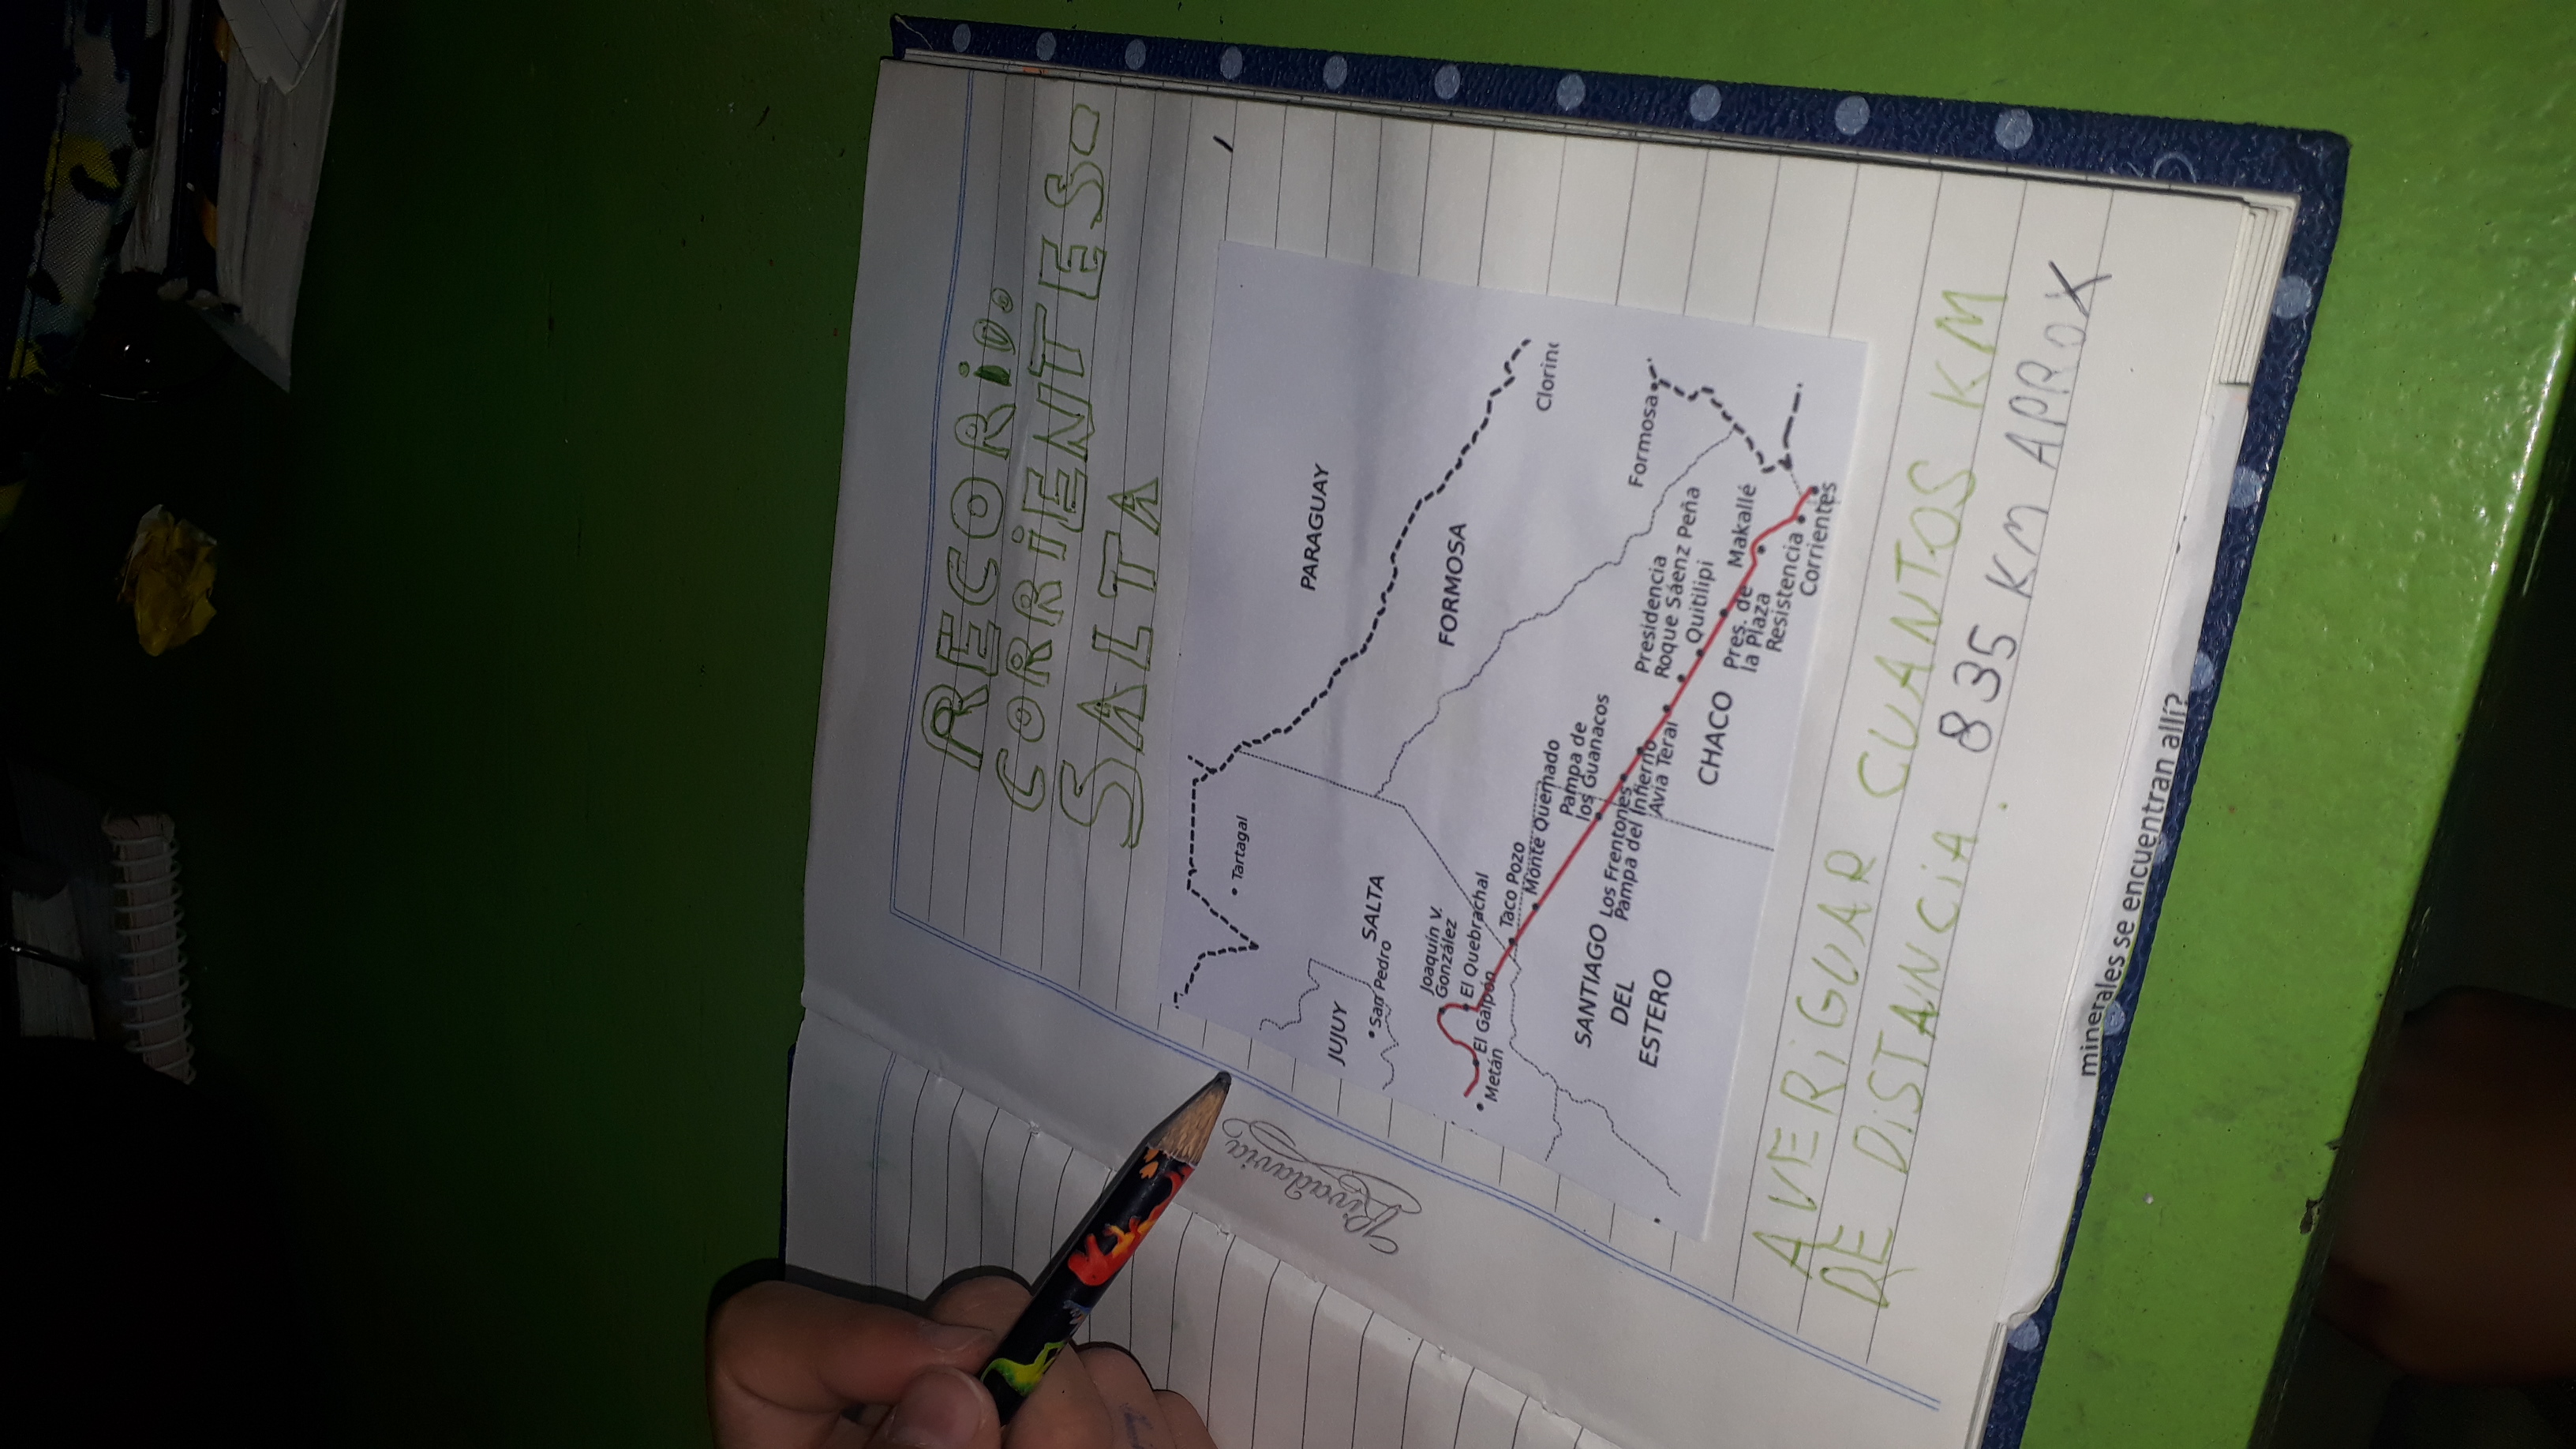 RECORiD.
CORRiENTES
SALTA
PARAGUAY
Tartagal
FORMOSA
JUJUY
San Pedro
SALTA
Formosa
Joaquín V.
González
El Quebrachal
El Galpón
Metán
Taco Pozo
Monte Quemado
Pampa de
los Guanacos
Los Frentones
Pampa del Infierno
Avia Terai
Presidencia
Roque Sáenz Peña
Quitilipi
Pres. de
la Plaza
Makallé
Resistencia
Corrientes
CHACO
SANTIAGO
DEL
ESTERO
AVERiGUAR CUANTOS KM
DE DiSTANCiA. 835 KM APROX
minerales se encuentran allí?
Rivadavia